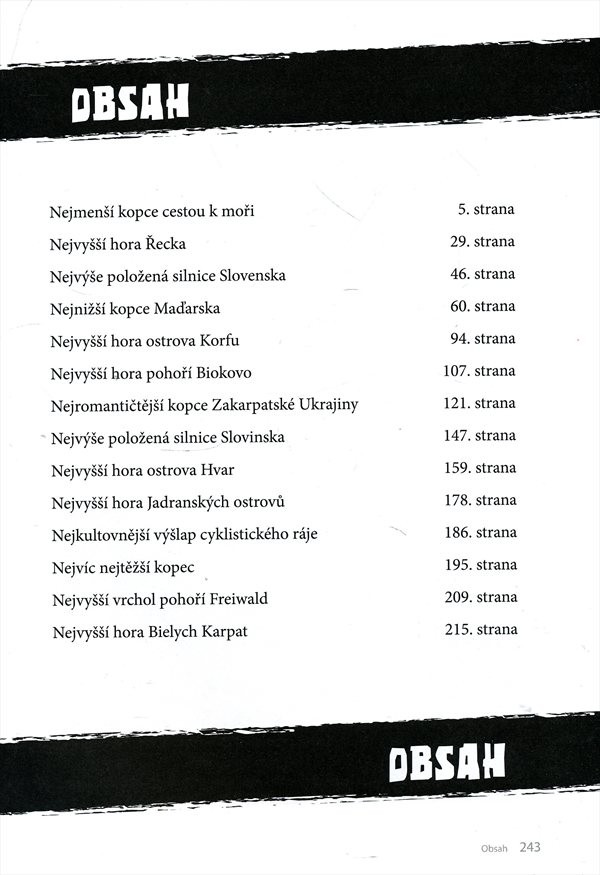 OBSAH
Nejmenší kopce cestou k moři 5. strana
Nejvyšší hora Řecka 29. strana
Nejvýše položená silnice Slovenska 46. strana
Nejnižší kopce Maďarska 60. strana
Nejvyšší hora ostrova Korfu 94. strana
Nejvyšší hora pohoří Biokovo 107. strana
Nejromantičtější kopce Zakarpatské Ukrajiny 121. strana
Nejvýše položená silnice Slovinska 147. strana
Nejvyšší hora ostrova Hvar 159. strana
Nejvyšší hora Jadranských ostrovů 178. strana
Nejkultovnější výšlap cyklistického ráje 186. strana
Nejvíc nejtěžší kopec 195. strana
Nejvyšší vrchol pohoří Freiwald 209. strana
Nejvyšší hora Bielych Karpat 215. strana
OBSAH
Obsah 243